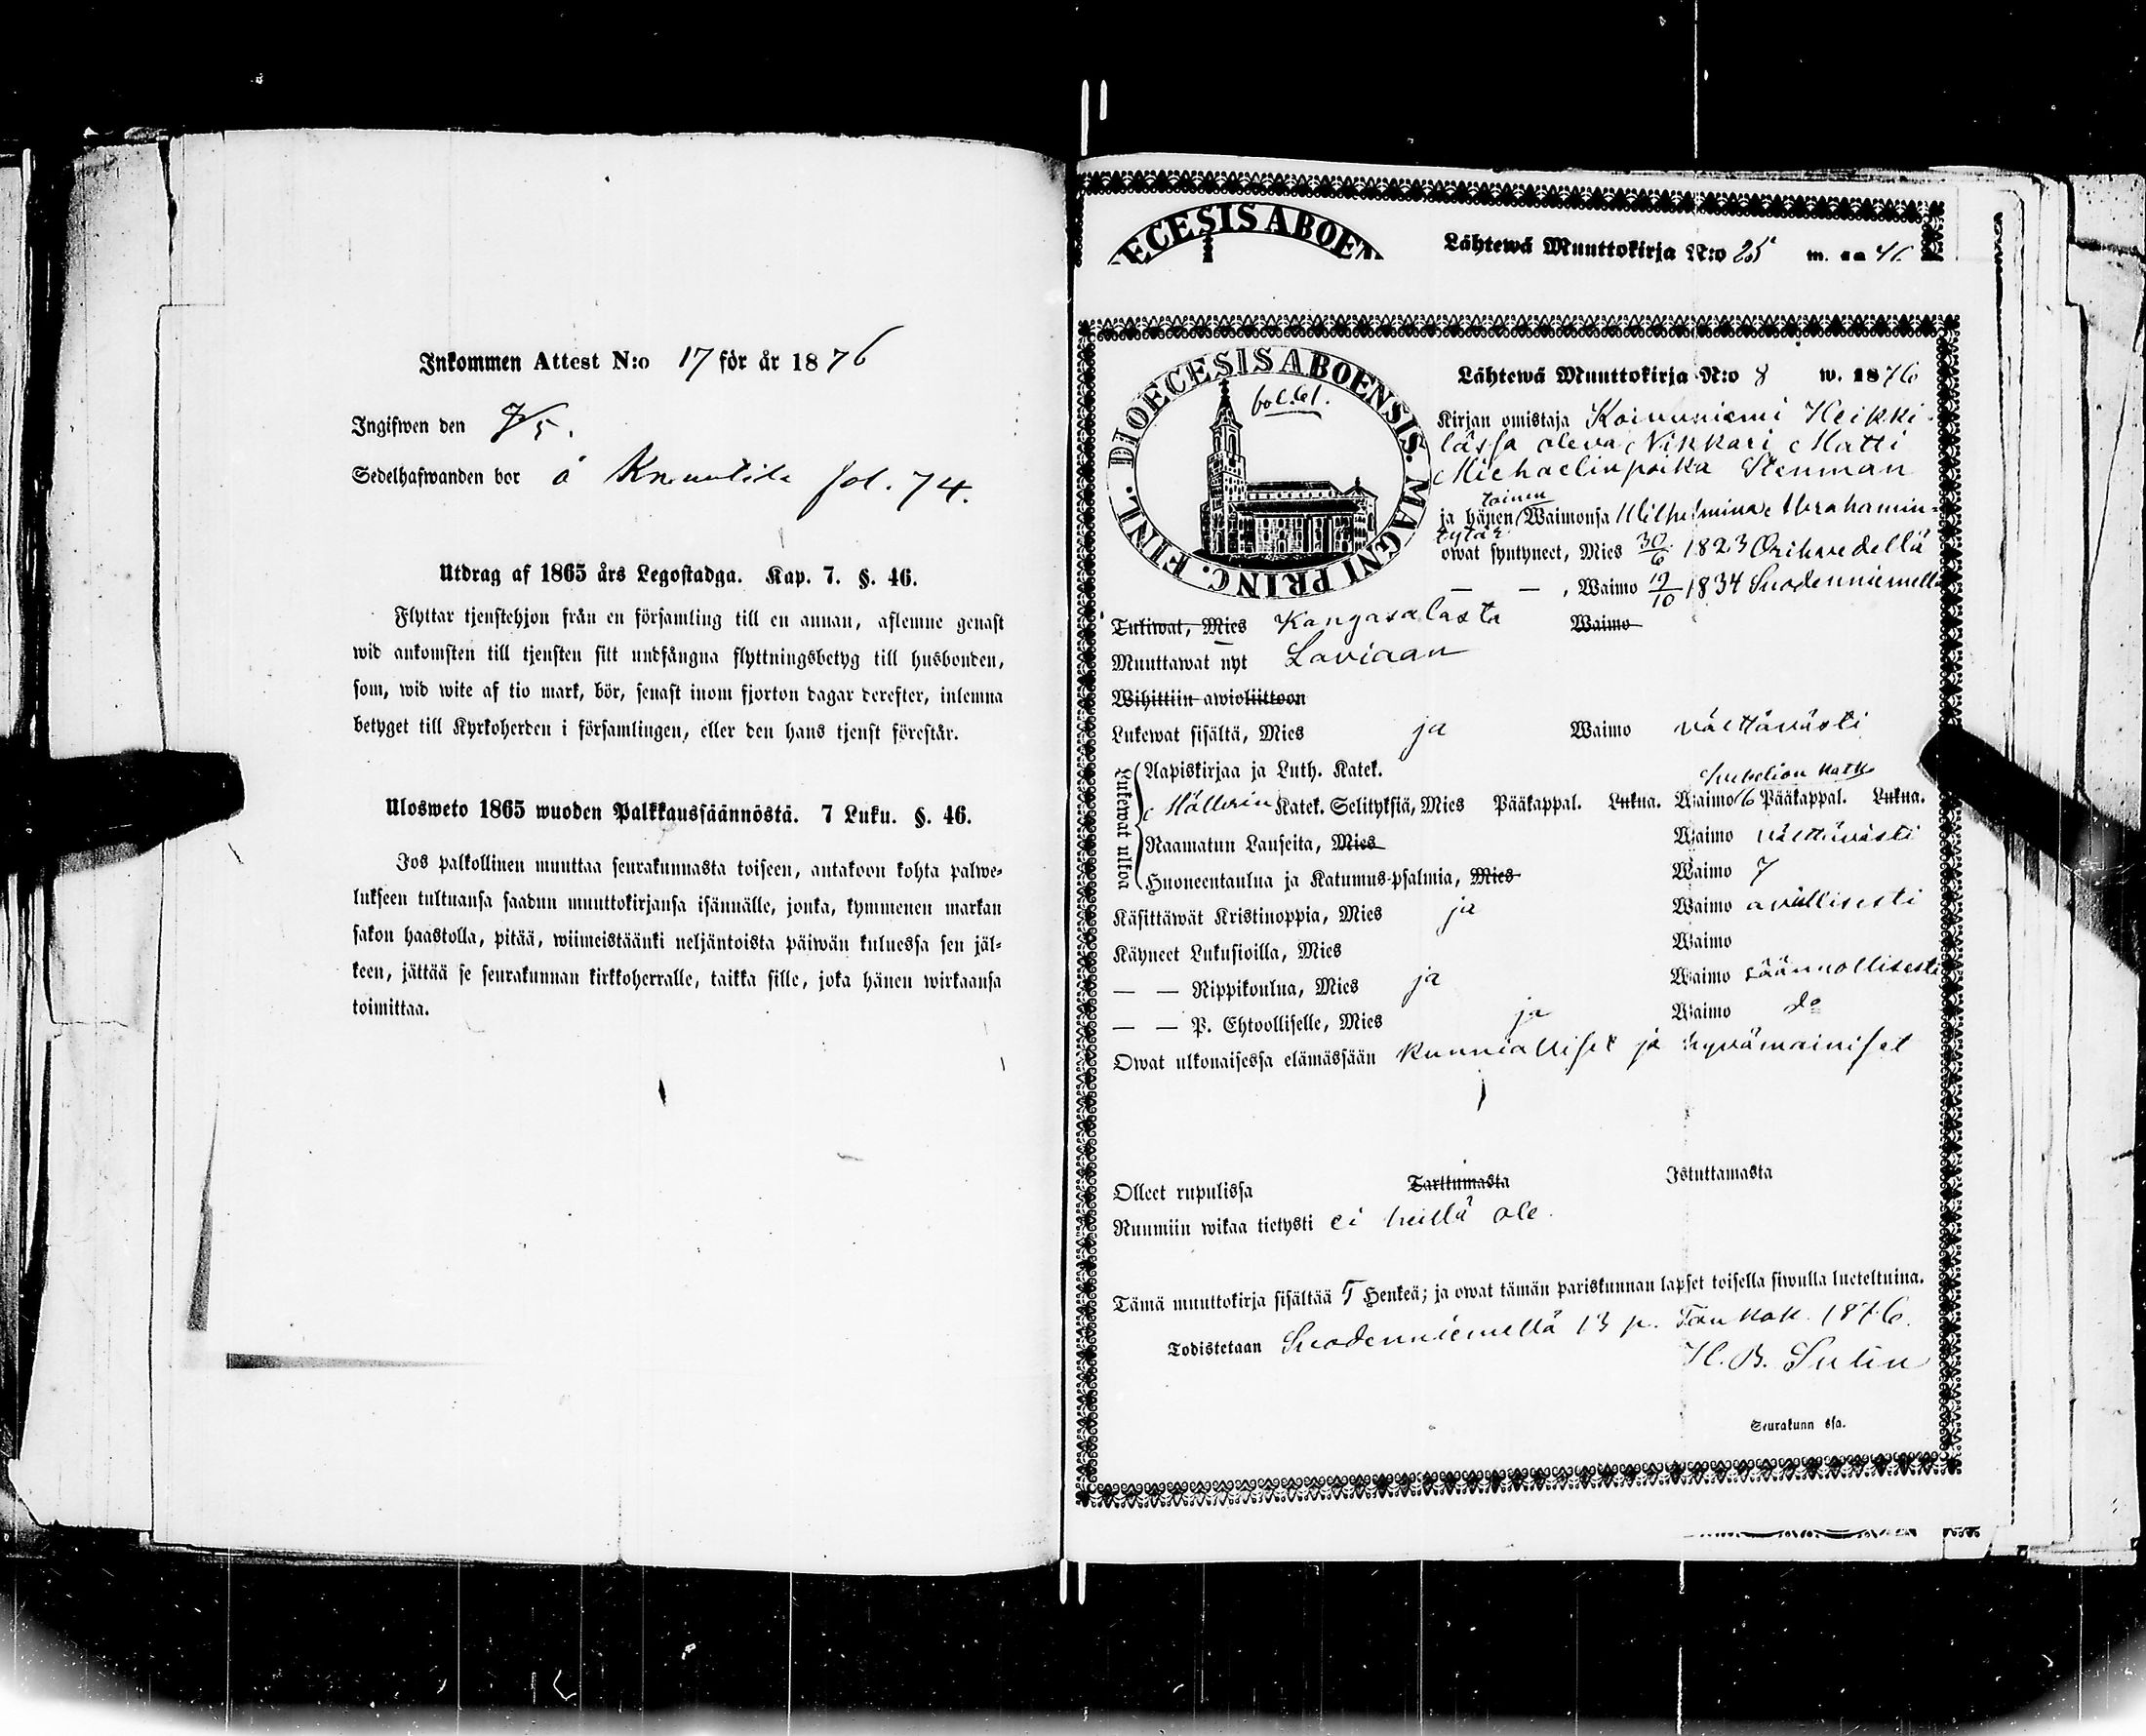 Inkommen Attest N:o 17 för år 1876
Ingifwen den 7/5.
Sedelhafwanden bor å Knuutila fol. 74.
Utdrag af 1865 års Legostadga. Kap. 7. §. 46.
Flyttar tjenstehjon från en församling till en annan, aflemne genast
wid ankomsten till tjensten sitt undfångna flyttningsbetyg till husbonden,
som, wid wite af tio mark, bör, senast inom fjorton dagar derefter, inlemna
betyget till Kyrkoherden i församlingen, eller den hans tjenst förestår.
Ulosweto 1865 wuoden Palkkaussäännöstä. 7 Luku. §. 46.
Jos palkollinen muuttaa seurakunnasta toiseen, antakoon kohta palwe-
lukseen tultuansa saadun muuttokirjansa isännälle, jonka, kymmenen markan
sakon haastolla, pitää, wiimeistäänki neljäntoista päiwän kuluessa sen jäl-
keen, jättää se seurakunnan kirkkoherralle, taikka sille, joka hänen wirkaansa
toimittaa.
ECESIS ABOEN
Lähtewä Muuttokirja N:o 25
DIOECESIS ABOENSIS. MAGNI PRINC. FINL.
Lähtewä Muuttokirja N:o 8 w. 1876
Kirjan omistaja Koivuniemi Heikki-
lässa oleva Nikkari Matti
Michaelinpoika Stenman
toinen
ja hänen Waimonsa Wilhelmina Abrahamin-
tytär
owat syntyneet, Mies 30/6 1823 Orihvedellä
— — , Waimo 19/10 1834 Suodenniemellä
Tuliwat, Mies Kangasalasta Waimo
Muuttawat nyt Laviaan
Wihittiin awioliittoon
Lukewat sisältä, Mies ja Waimo välttävästi
Lukewat ulkoa
Aapiskirjaa ja Luth. Katek.
Svebelion katk.
Möllerin Katek. Selityksiä, Mies Pääkappal. Lukua. Waimo 6 Pääkappal. Lukua.
Raamatun Lauseita, Mies Waimo välttävästi
Huoneentaulua ja Katumus-psalmia, Mies Waimo 7
Käsittäwät Kristinoppia, Mies ja Waimo avullisesti
Käyneet Lukusioilla, Mies Waimo
— — Rippikoulua, Mies ja Waimo säännollisesti
— — P. Ehtoolliselle, Mies ja Waimo do
Owat ulkonaisessa elämässään kunnialliset ja hyvämainiset
Olleet rupulissa Tarttumasta Istuttamasta
Ruumiin wikaa tietysti ei heillä ole.
Tämä muuttokirja sisältää 5 Henkeä; ja owat tämän pariskunnan lapset toisella siwulla lueteltuina.
Todistetaan Suodenniemellä 13 p. Toukok. 1876.
Seurakunn ssa.